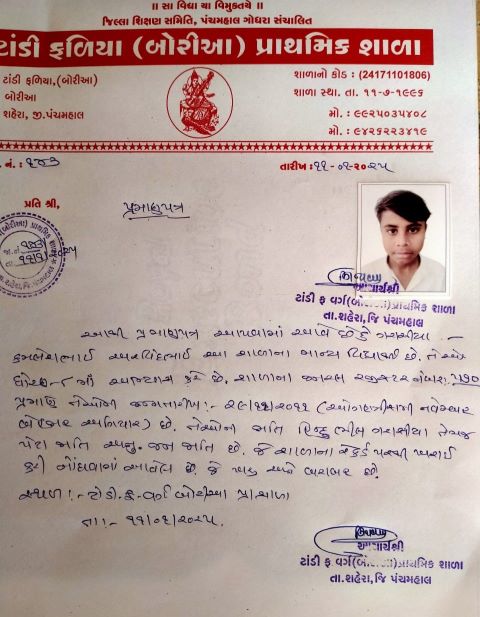 ॥ સા વિદ્યા યા વિમુક્તયે ॥
જિલ્લા શિક્ષણ સમિતિ, પંચમહાલ ગોધરા સંચાલિત
ટાંડી ફળિયા (બોરીઆ) પ્રાથમિક શાળા
ટાંડી ફળિયા,(બોરીઆ)
બોરીઆ
શહેરા, જી.પંચમહાલ
શાળાનો કોડ : (24171101806)
શાળા સ્થા. તા. ૧૧-૭-૧૯૯૬
મો. : ૯૯૨૫૦૩૫૪૦૮
મો. : ૯૪૨૬૨૨૩૪૧૯
નં. :
તારીખ : ૧૧-૦૧-૨૦૨૫
પ્રતિ શ્રી,
પ્રમાણપત્ર
આચાર્યશ્રી
ટાંડી ફ વર્ગ(બોરીઆ)પ્રાથમિક શાળા
તા.શહેરા,જિ પંચમહાલ
આથી પ્રમાણપત્ર આપવામાં આવે છે કે
આ શાળાના વિદ્યાર્થી છે. તેઓ
ધોરણ માં અભ્યાસ કરે છે. શાળાના જનરલ રજીસ્ટર નંબર:
પ્રમાણે તેઓની જન્મતારીખ:- ૨૯/૧૧/૨૦૧૧ (ઓગણત્રીસમી નવેમ્બર
બે હજાર અગિયાર) છે. તેઓની જાતિ હિન્દુ ભીલ તેમજ
પેટા જાતિ અનુ. જન જાતિ છે. જે શાળાના રેકર્ડ પરથી ખરાઈ
કરી નોંધવામાં આવેલ છે. જે ખરું અને બરાબર છે.
સ્થળ :- ટાંડી ફ. વર્ગ બોરીઆ પ્રા શાળા
તા:- ૧૧/૦૧/૨૦૨૫.
આચાર્યશ્રી
ટાંડી ફ વર્ગ(બોરીઆ)પ્રાથમિક શાળા
તા.શહેરા,જિ પંચમહાલ